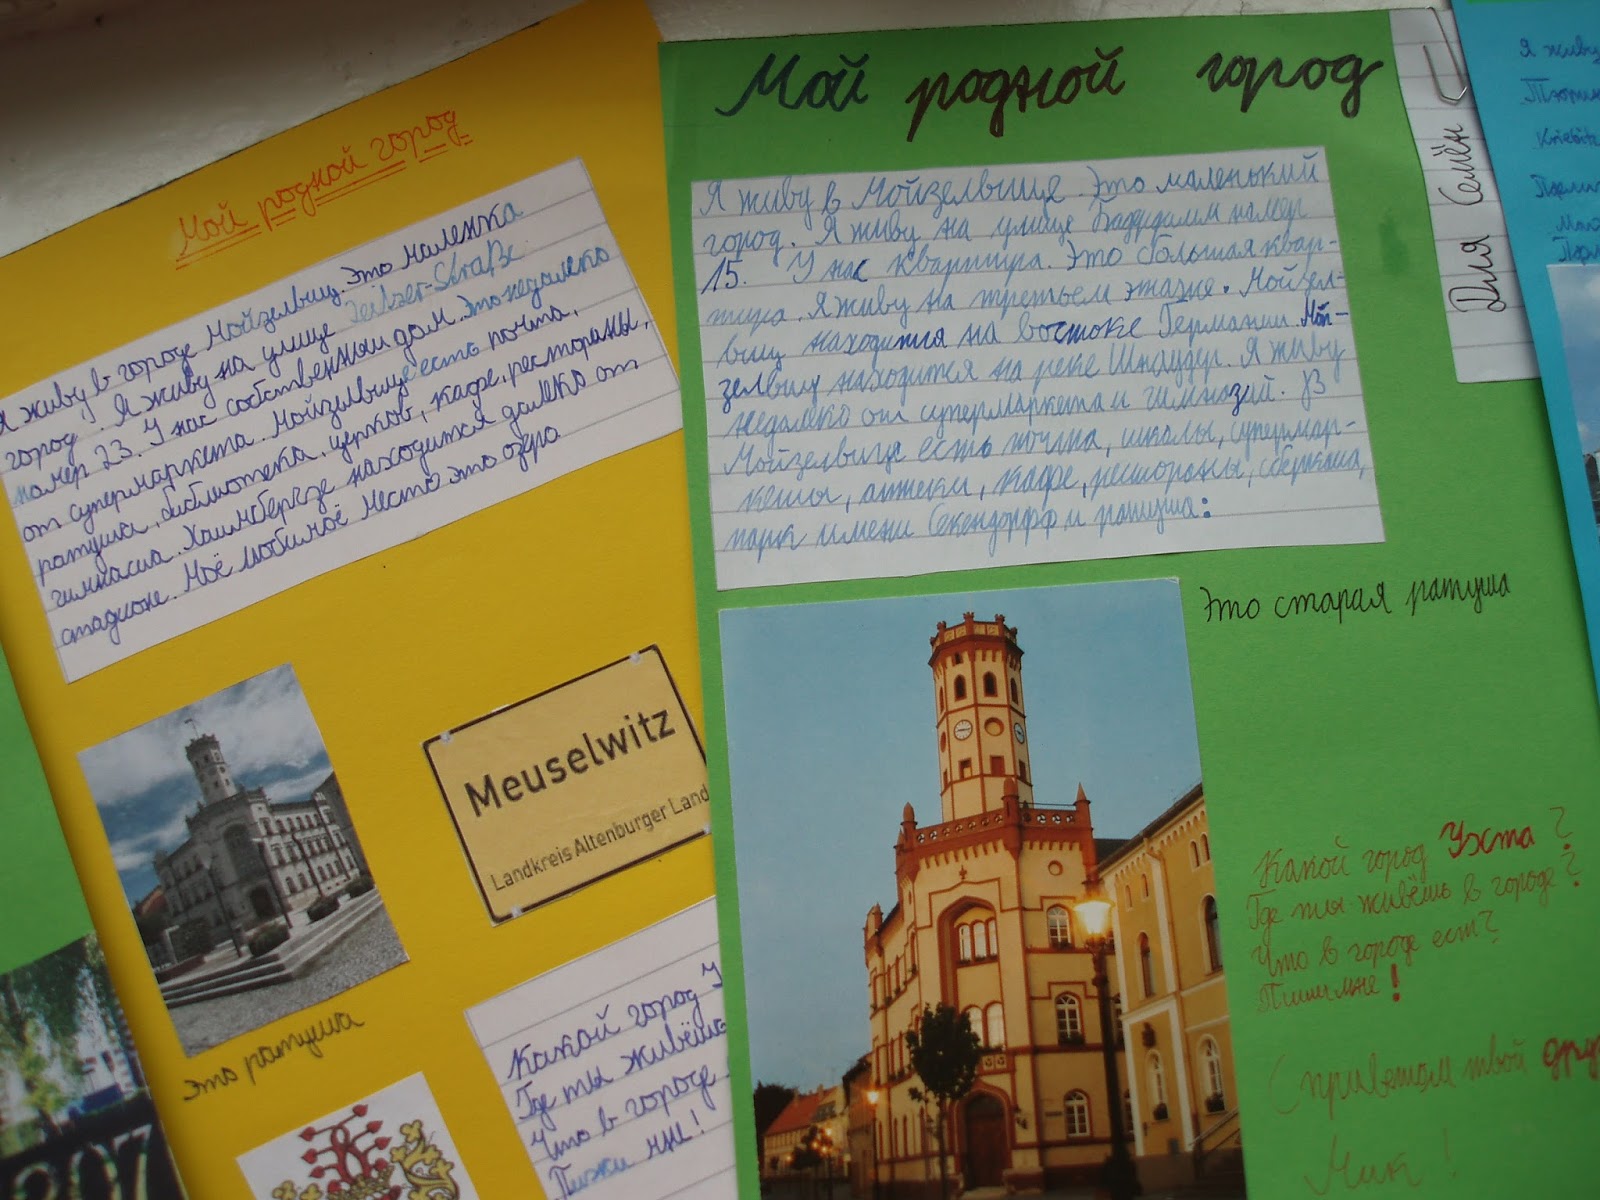 Мой родной город
Я живу в городе Мойзелвиц. Это маленка
город. Я живу на улице Zeitzer-Straße
номер 23. У нас собственный дом. Это недалеко
от супермаркета. Мойзелвице есть почта,
ратуша, библиотека, церков, кафе, рестораны,
гимнасиа. находится далеко от
стадионе. Моё любимоё место это озеро
Meuselwitz
Landkreis Altenburger Land
Это ратуша
Какой город
Где ты живёшь
Что в городе
Мой родной город
Я живу в Мойзелвице. Это маленький
город. Я живу на улице номер
15. У нас квартира. Это большая квар-
тира. Я живу на третьем этаже. Мойзел-
виц находится на востоке Германии. Мой-
зелвиц находится на реке Шнаудер. Я живу
недалеко от супермаркета и гимназий. В
Мойзелвице есть почта, школы, супермар-
кеты, аптеки, кафе, рестораны, сберкаса,
парк имени Секендорфф и ратуша:
Это старая ратуша
Какой город Ухта?
Где ты живёшь в городе?
Что в городе ест?
Пиши мне!
С приветом твой дру
Ник!
Для Семён
Я живу